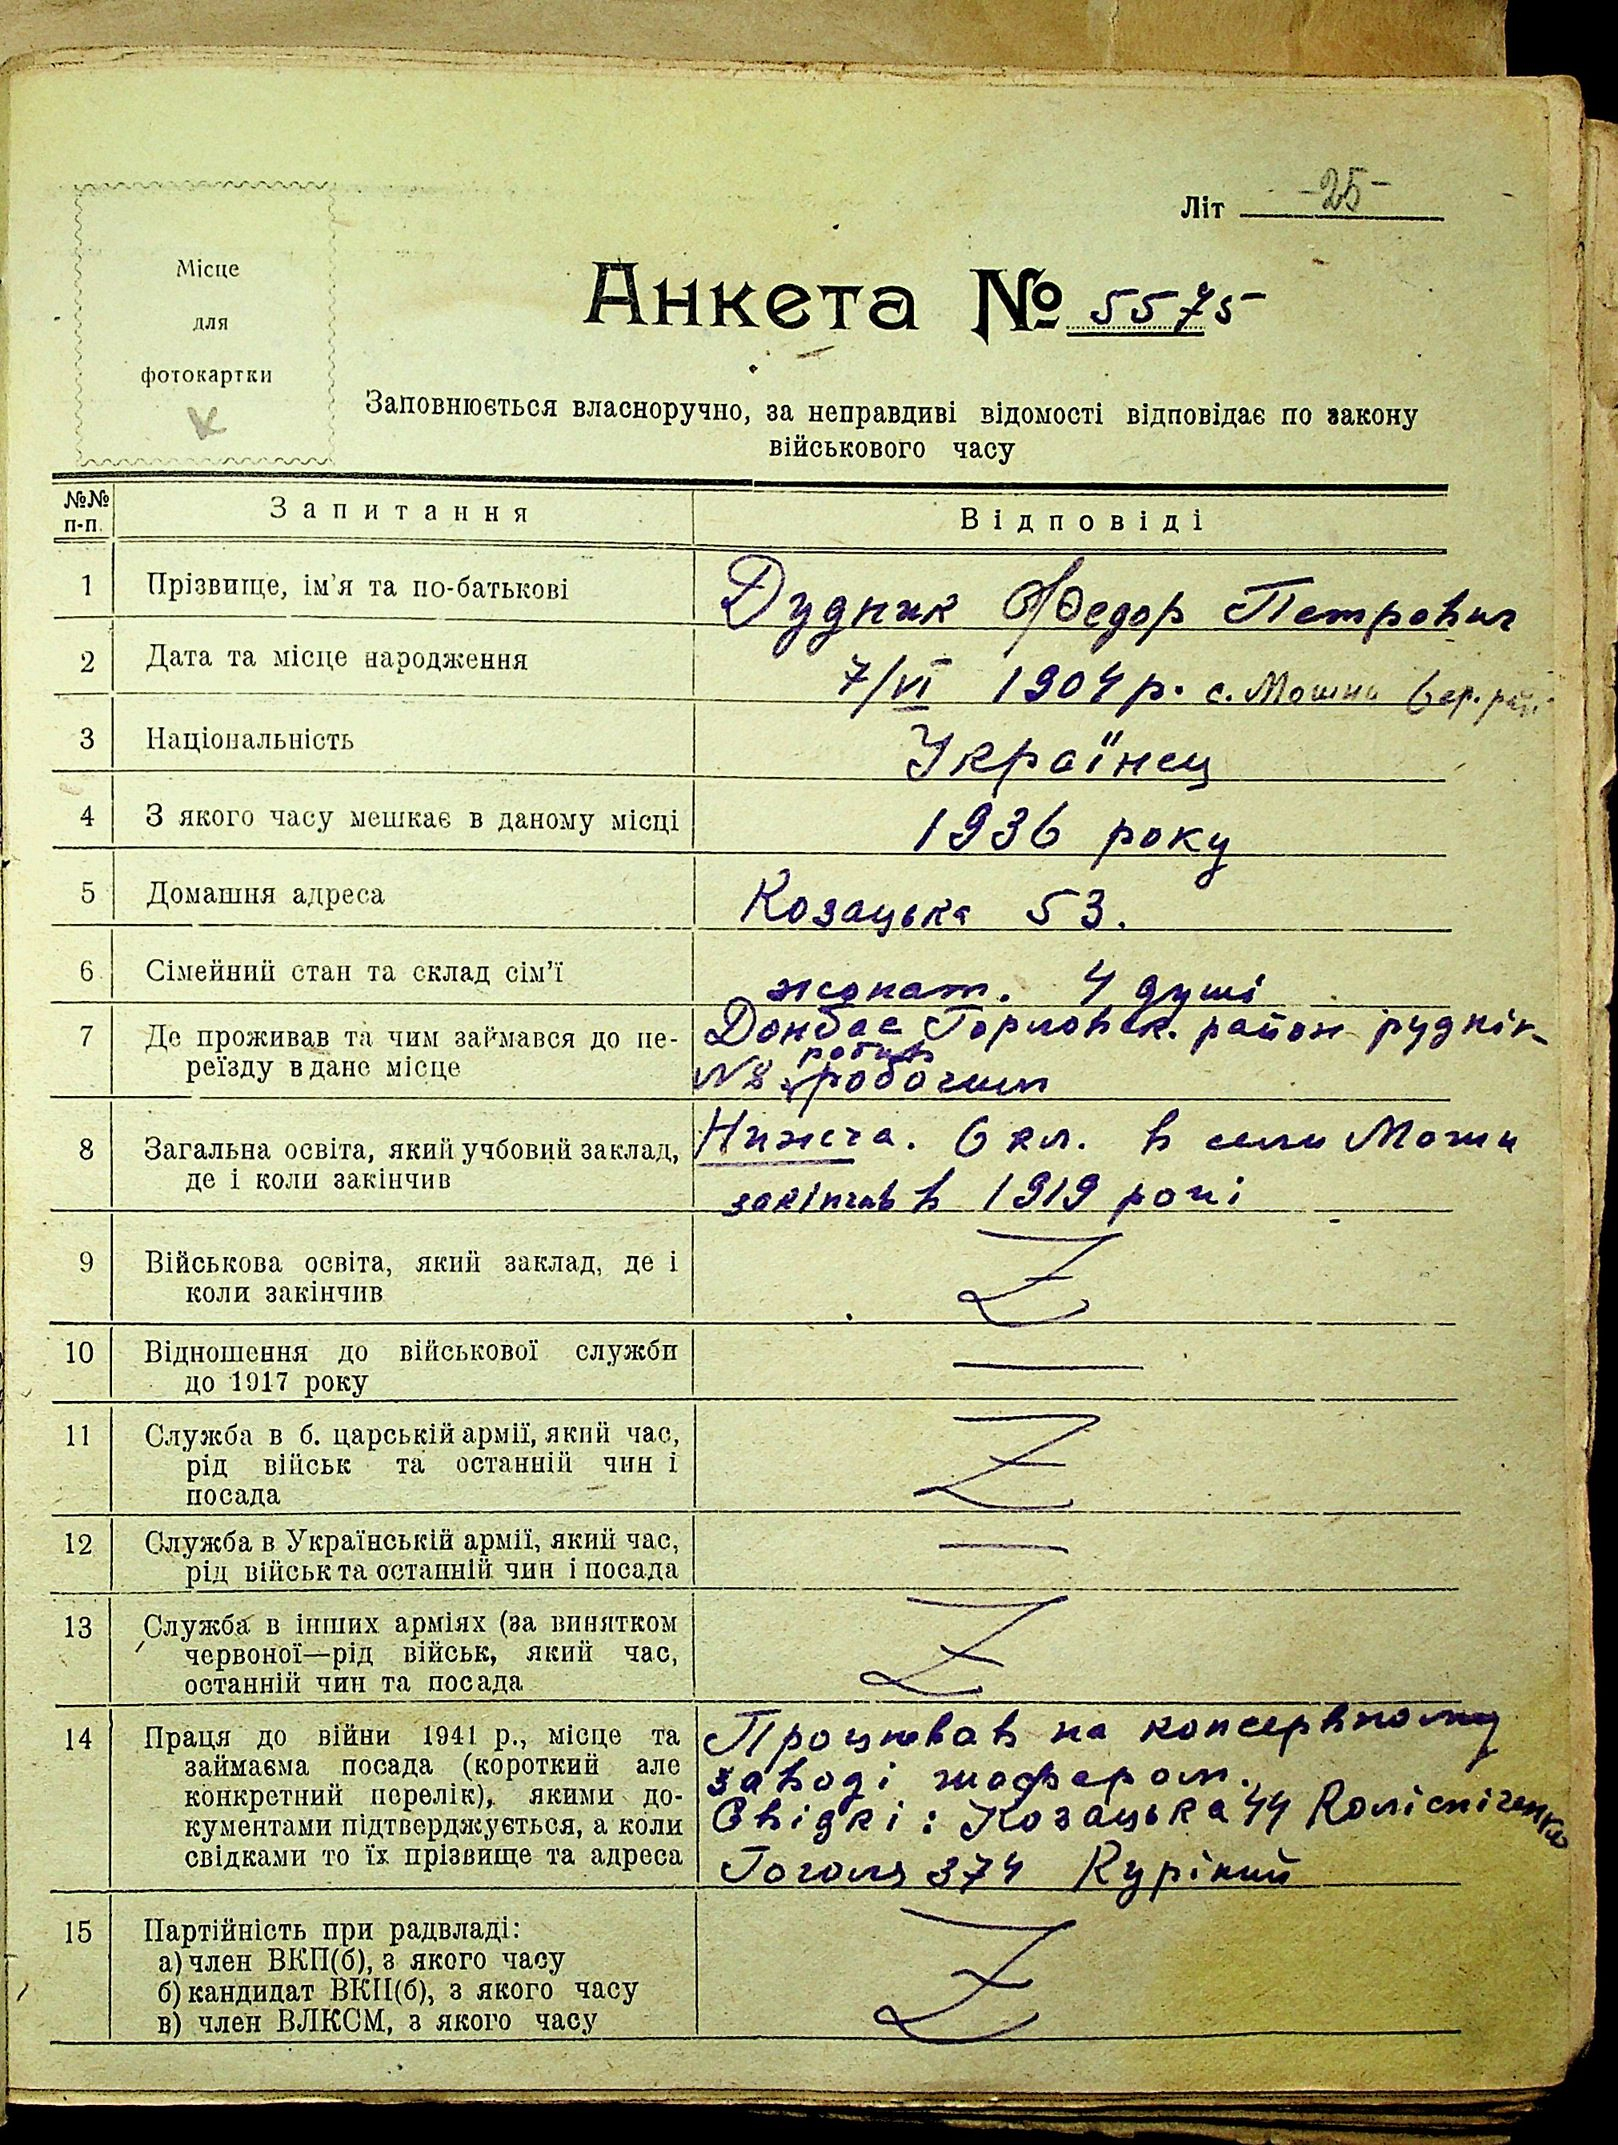 Літ -25-
Місце
для
фотокартки
Анкета № 5575
Заповнюється власноручно, за неправдиві відомості відповідає по закону
військового часу
№№ п-п. Запитання Відповіді
1 Прізвище, ім'я та по-батькові Дудник Федор Петрович
2 Дата та місце народження 7/VI 1904 р. с. Мошни
3 Національність Українец
4 З якого часу мешкає в даному місці 1936 року
5 Домашня адреса Козацька 53.
6 Сімейний стан та склад сім'ї жонат. 4 душі
7 Де проживав та чим займався до пе- Донбас Горловск. район руднік
реїзду в дане місце №8 робочим
8 Загальна освіта, який учбовий заклад, Нижча. 6 кл. в сели Мошни
де і коли закінчив закінчив в 1919 році
9 Військова освіта, який заклад, де і
коли закінчив
10 Відношення до військової служби
до 1917 року —
11 Служба в б. царській армії, який час,
рід військ та останній чин і
посада
12 Служба в Українській армії, який час, —
рід військ та останній чин і посада
13 Служба в інших арміях (за винятком
червоної—рід військ, який час,
останній чин та посада
14 Праця до війни 1941 р., місце та на консервному
займаєма посада (короткий але заводі шофером.
конкретний перелік), якими до- Свідкі: Козацька 44 Колісніченко
кументами підтверджується, а коли
свідками то їх прізвище та адреса Гоголя 374
15 Партійність при радвладі:
а) член ВКП(б), з якого часу
б) кандидат ВКП(б), з якого часу
в) член ВЛКСМ, з якого часу